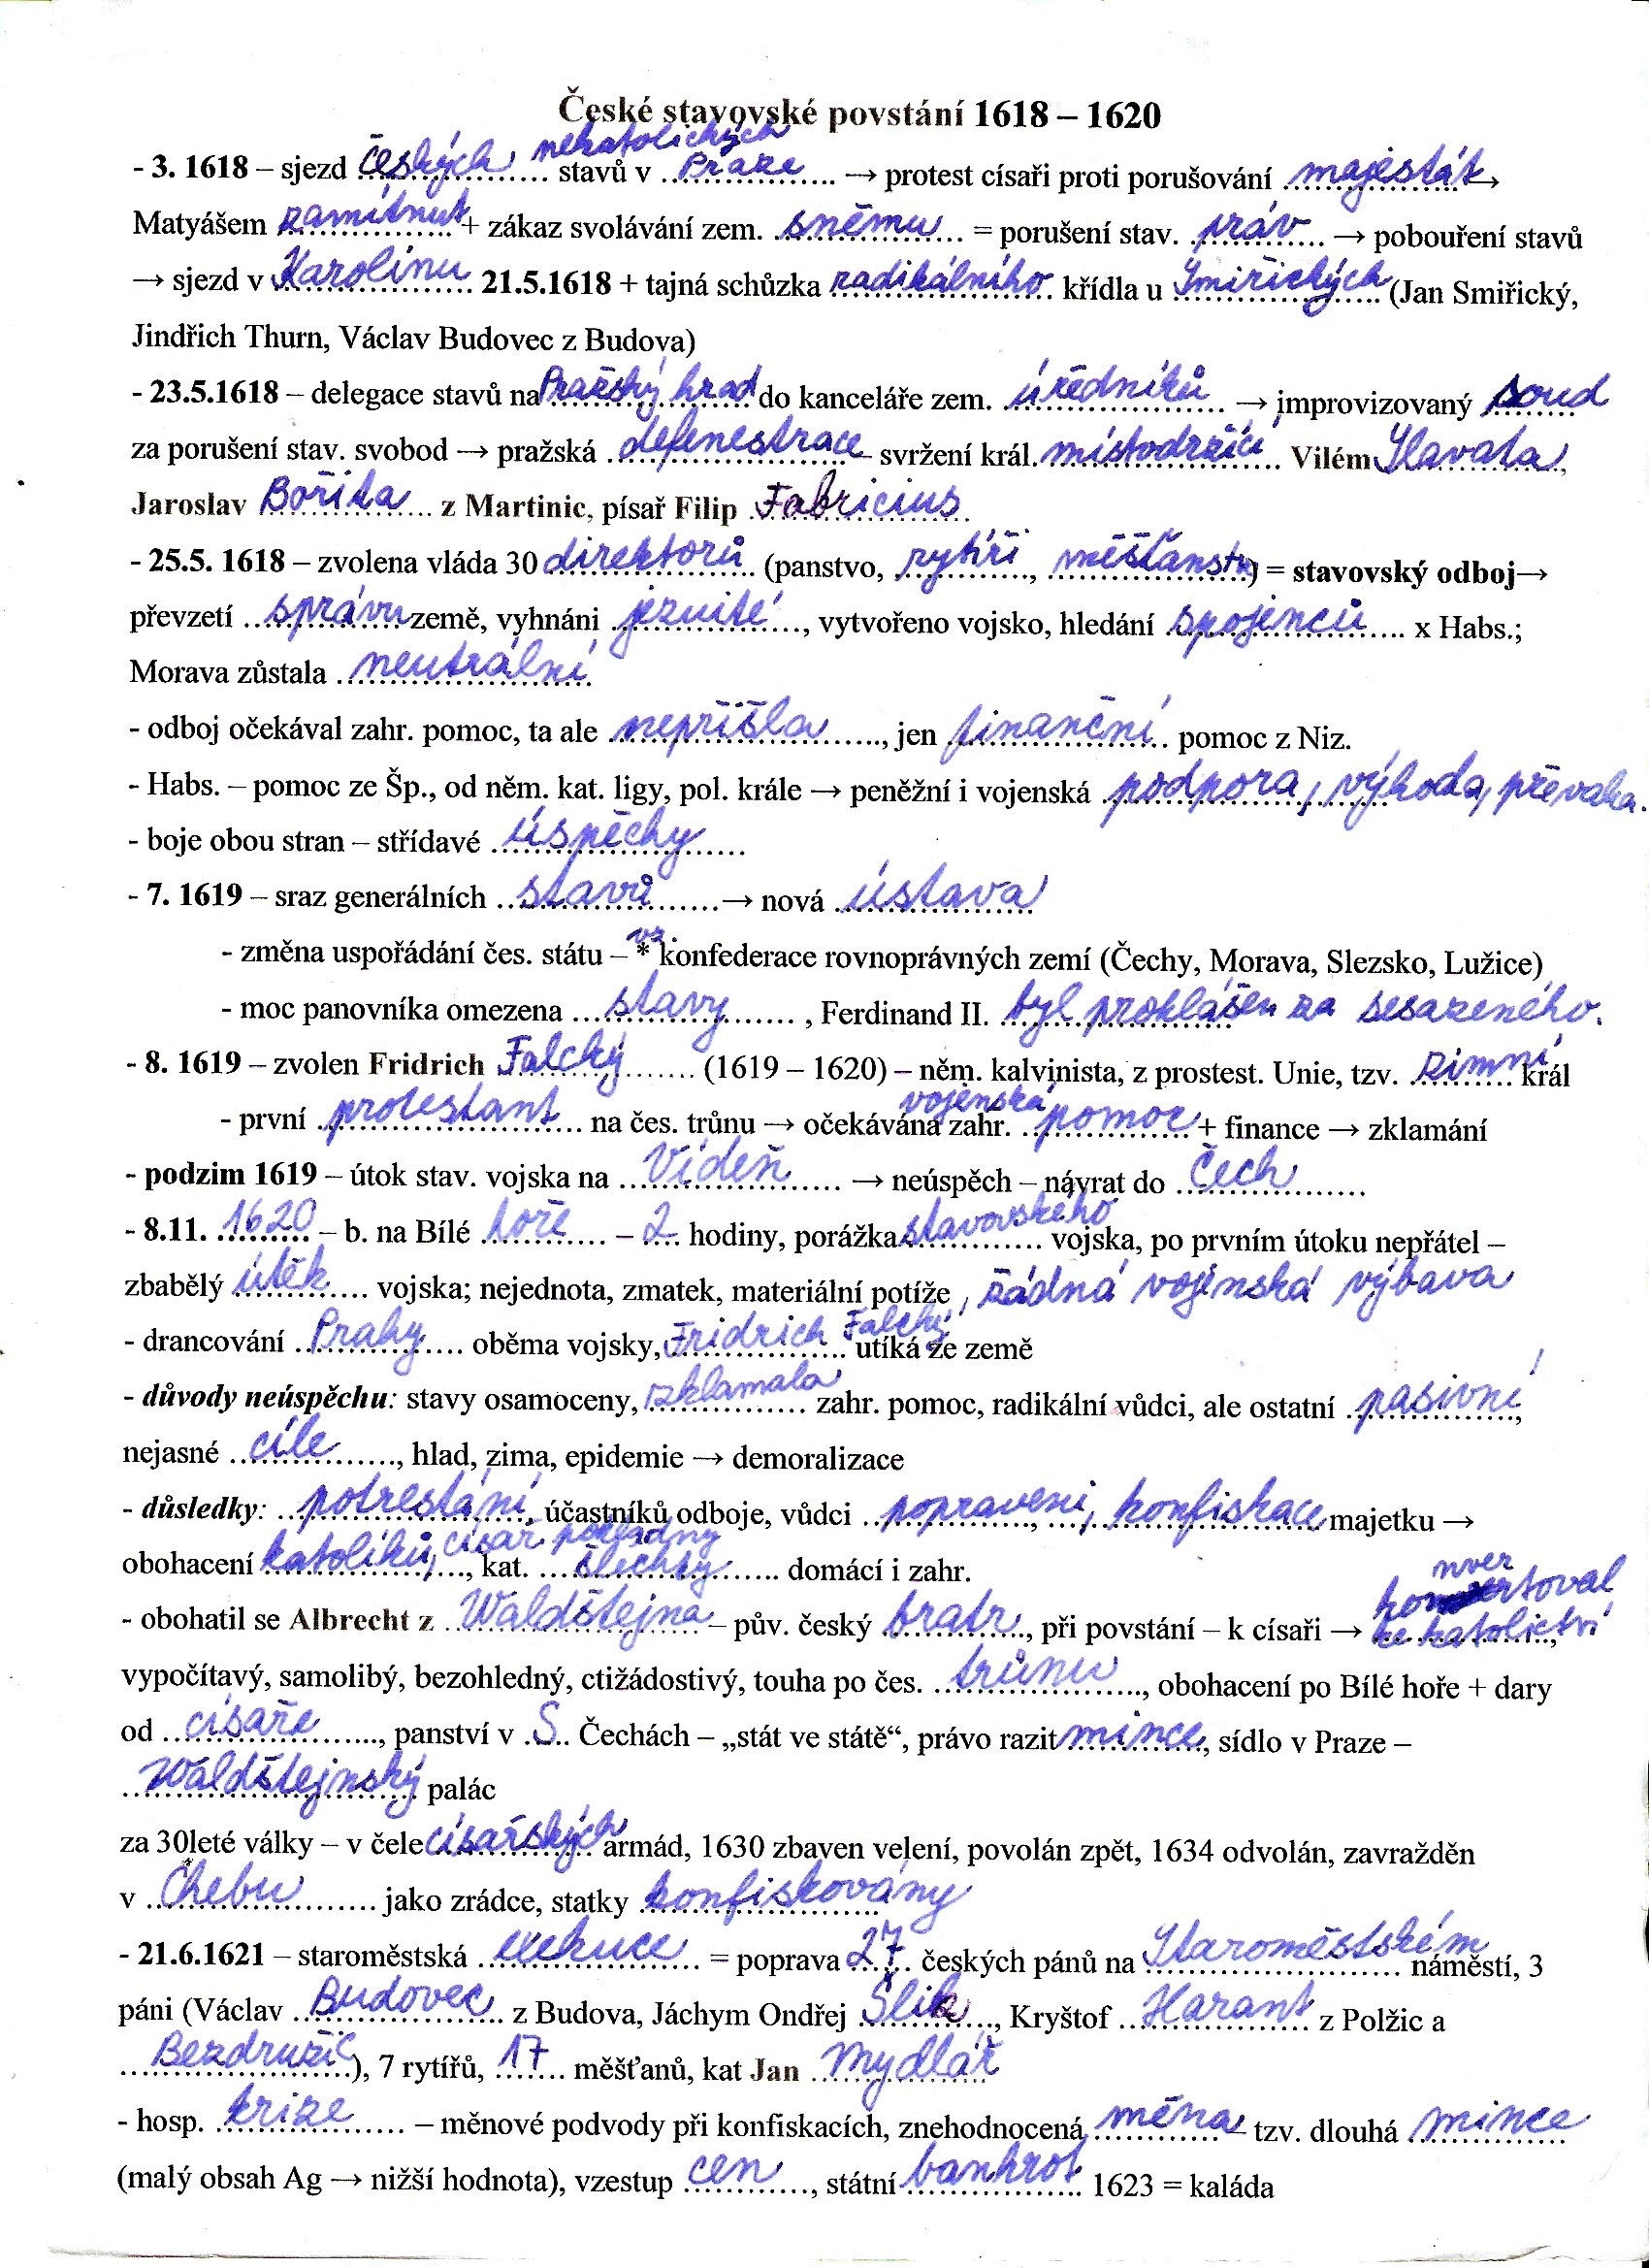 České stavovské povstání 1618 – 1620
- 3. 1618 – sjezd českých nekatolických stavů v Praze → protest císaři proti porušování majestát →
Matyášem zamítnut + zákaz svolávání zem. sněmu = porušení stav. práv → pobouření stavů
→ sjezd v Karolínu 21.5.1618 + tajná schůzka radikálního křídla u Smiřických (Jan Smiřický,
Jindřich Thurn, Václav Budovec z Budova)
- 23.5.1618 – delegace stavů na Pražský hrad do kanceláře zem. úředníků → improvizovaný soud
za porušení stav. svobod → pražská defenestrace – svržení král. místodržící Vilém Slavata,
Jaroslav Bořita z Martinic, písař Filip Fabricius
- 25.5. 1618 – zvolena vláda 30 direktorů (panstvo, rytíři, měšťanstv) = stavovský odboj→
převzetí správu země, vyhnáni jezuité, vytvořeno vojsko, hledání spojenců x Habs.;
Morava zůstala neutrální
- odboj očekával zahr. pomoc, ta ale nepřišla, jen finanční pomoc z Niz.
- Habs. – pomoc ze Šp., od něm. kat. ligy, pol. krále → peněžní i vojenská podpora, výhoda, převaha.
- boje obou stran – střídavé úspěchy
- 7. 1619 – sraz generálních stavů → nová ústava
- změna uspořádání čes. státu – * vz. konfederace rovnoprávných zemí (Čechy, Morava, Slezsko, Lužice)
- moc panovníka omezena stavy, Ferdinand II. byl prohlášen za sesazeného.
- 8. 1619 – zvolen Fridrich Falcký (1619 – 1620) – něm. kalvinista, z prostest. Unie, tzv. zimní král
- první protestant na čes. trůnu → očekávána zahr. vojenská pomoc + finance → zklamání
- podzim 1619 – útok stav. vojska na Vídeň → neúspěch – návrat do Čech
- 8.11. 1620 – b. na Bílé hoře – 2 hodiny, porážka stavovského vojska, po prvním útoku nepřátel –
zbabělý útěk vojska; nejednota, zmatek, materiální potíže, žádná vojenská výbava
- drancování Prahy oběma vojsky, Fridrich Falcký utíká ze země
- důvody neúspěchu: stavy osamoceny, zklamala zahr. pomoc, radikální vůdci, ale ostatní pasivní!,
nejasné cíle, hlad, zima, epidemie → demoralizace
- důsledky: potrestání, účastníků odboje, vůdci popraveni, konfiskace majetku →
obohacení katolíků, císař. pokladny, kat. šlechty domácí i zahr.
- obohatil se Albrecht z Waldštejna – pův. český bratr, při povstání – k císaři → konvertoval ke katolictví,
vypočítavý, samolibý, bezohledný, ctižádostivý, touha po čes. trůnu, obohacení po Bílé hoře + dary
od císaře, panství v S. Čechách – „stát ve státě“, právo razit mince, sídlo v Praze –
Waldštejnský palác
za 30leté války – v čele císařských armád, 1630 zbaven velení, povolán zpět, 1634 odvolán, zavražděn
v Chebu jako zrádce, statky konfiskovány
- 21.6.1621 – staroměstská exekuce = poprava 27 českých pánů na Staroměstském náměstí, 3
páni (Václav Budovec z Budova, Jáchym Ondřej Šlik, Kryštof Harant z Polžic a
Bezdružic), 7 rytířů, 17 měšťanů, kat Jan Mydlář
- hosp. krize – měnové podvody při konfiskacích, znehodnocená měna – tzv. dlouhá mince
(malý obsah Ag → nižší hodnota), vzestup cen, státní bankrot 1623 = kaláda